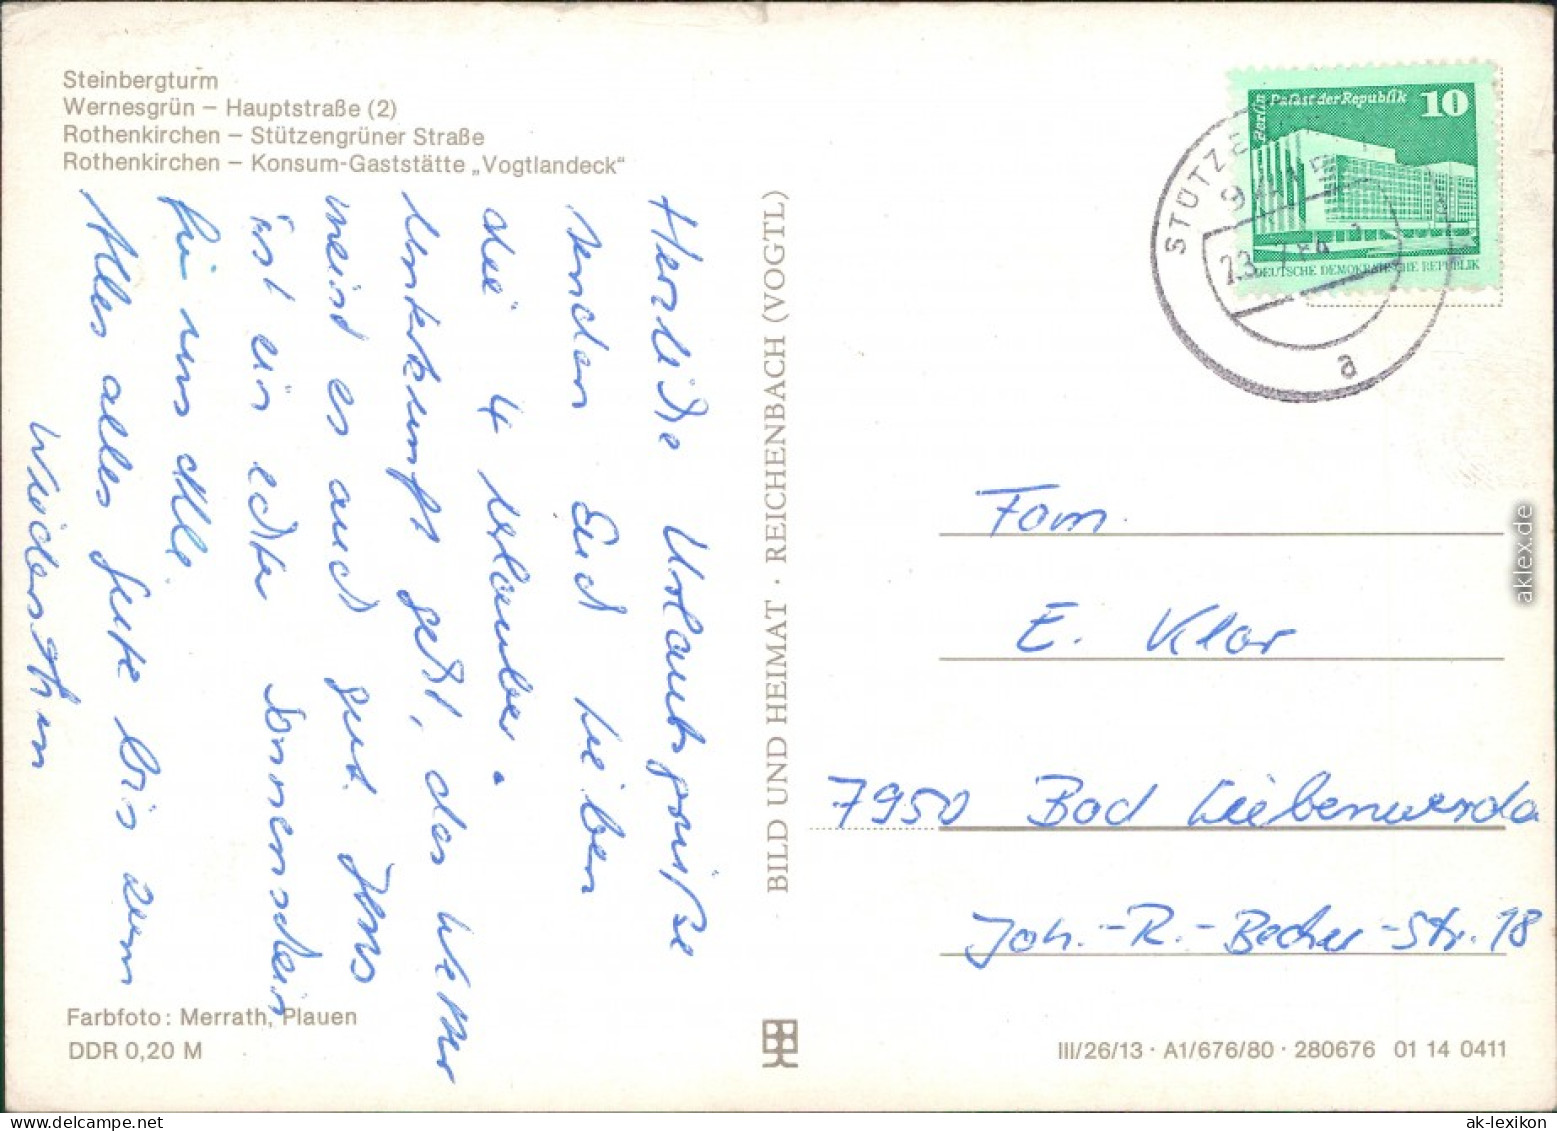 Steinbergturm
Wernesgrün – Hauptstraße (2)
Rothenkirchen – Stützengrüner Straße
Rothenkirchen – Konsum-Gaststätte „Vogtlandeck“
Herzliche Urlaubsgrüße
senden Euch lieben
die 4 Urlauber.
Unterkunft geht, das Wetter
meint es auch gut. Jens
ist ein echter Sonnenschein
für uns alle.
Alles alles Gute bis zum
Wiedersehen
BILD UND HEIMAT · REICHENBACH (VOGTL)
Berlin Palast der Republik 10
DEUTSCHE DEMOKRATISCHE REPUBLIK
STÜTZE
23. 7.84
a
Fam.
E. Klar
7950 Bad Liebenwerda
Joh.-R.-Becher-Str. 18
Farbfoto: Merrath, Plauen
DDR 0,20 M
III/26/13 · A1/676/80 · 280676 01 14 0411
aklex.de
ak-lexikon